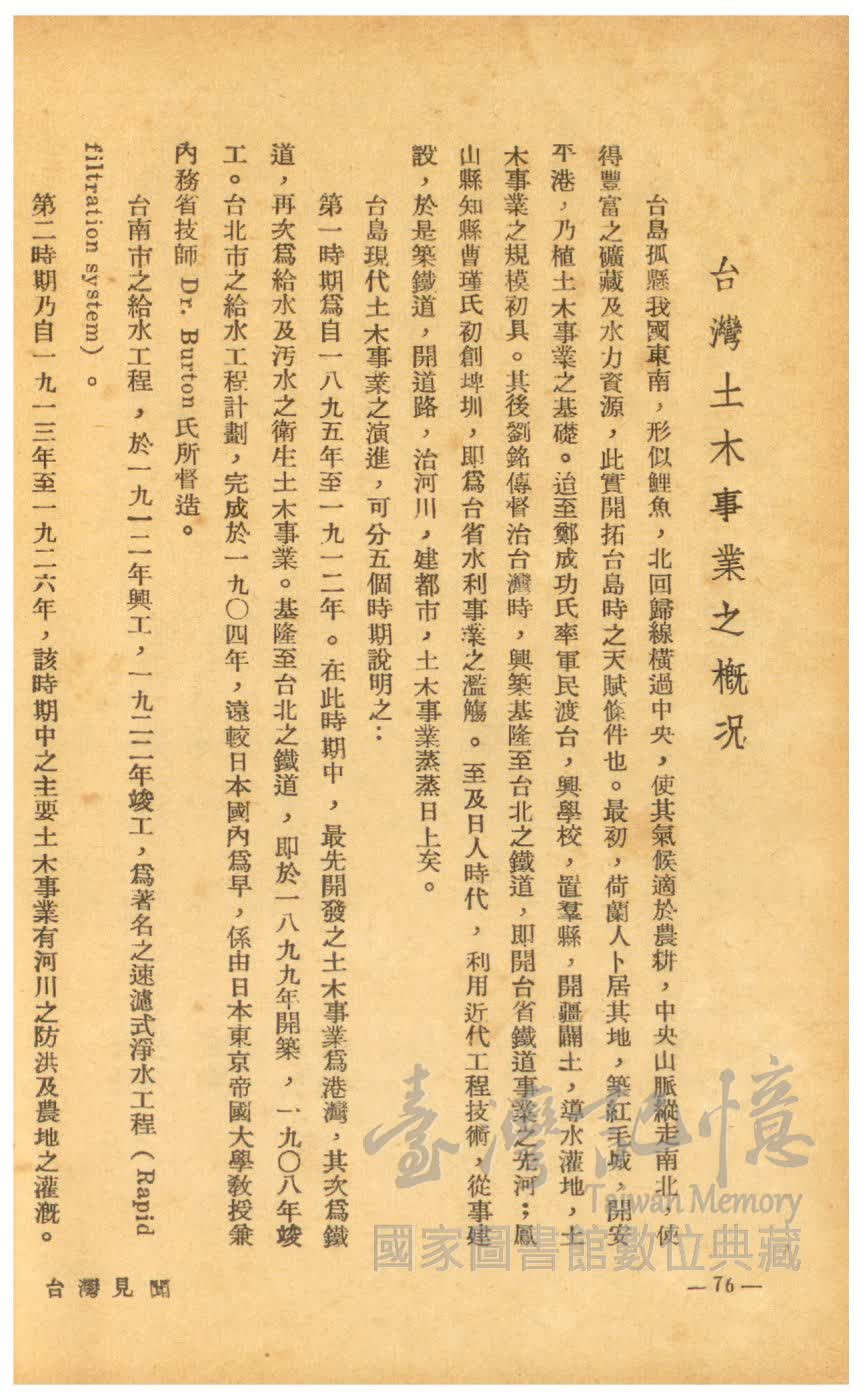 台灣土木事業之槪况
台島孤懸我國東南，形似鯉魚，北回歸線橫過中央，使其氣候適於農耕，中央山脈縱走南北，使
得豐富之礦藏及水力資源，此實開拓台島時之天賦條件也。最初，荷蘭人卜居其地，築紅毛城，開安
平港，乃植土木事業之基礎。迨至鄭成功氏率軍民渡台，興學校，置羣縣，開疆闢土，導水灌地，土
木事業之規模初具。其後劉銘傳督治台灣時，興築基隆至台北之鐵道，即開台省鐵道事業之先河；鳳
山縣知縣曹瑾氏初創埤圳，即爲台省水利事業之濫觴。至及日人時代，利用近代工程技術，從事建
設，於是築鐵道，開道路，治河川，建都市，土木事業蒸蒸日上矣。
台島現代土木事業之演進，可分五個時期說明之：
第一時期爲自一八九五年至一九一二年。在此時期中，最先開發之土木事業爲港灣，其次爲鐵
道，再次爲給水及汚水之衛生土木事業。基隆至台北之鐵道，即於一八九九年開築，一九〇八年竣
工。台北市之給水工程計劃，完成於一九〇四年，遠較日本國內爲早，係由日本東京帝國大學敎授兼
內務省技師 Dr. Burton 氏所督造。
台南市之給水工程，於一九一二年興工，一九二二年竣工，爲著名之速濾式淨水工程（Rapid
filtration system）。
第二時期乃自一九一三年至一九二六年，該時期中之主要土木事業有河川之防洪及農地之灌漑。
台灣見聞
—76—
臺灣記憶
Taiwan Memory
國家圖書館數位典藏